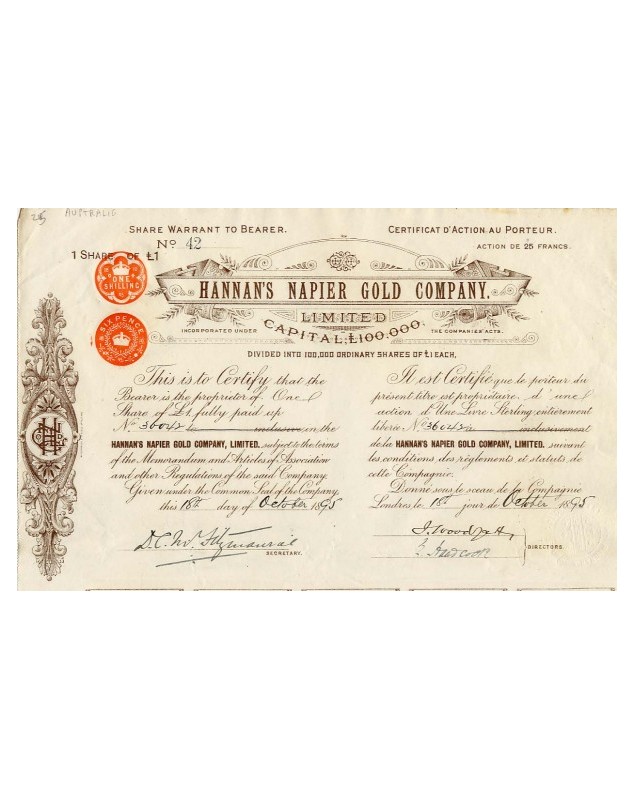 AUSTRALIE
SHARE WARRANT TO BEARER.
CERTIFICAT D'ACTION AU PORTEUR.
No 42
1 SHARE OF £1
ACTION DE 25 FRANCS.
ONE SHILLING
HANNAN'S NAPIER GOLD COMPANY.
LIMITED
SIX PENCE
INCORPORATED UNDER
THE COMPANIES' ACTS.
CAPITAL, £100,000,
DIVIDED INTO 100,000 ORDINARY SHARES OF £1 EACH,
This is to Certify that the
Bearer is the proprietor of One
Share of £1 fully paid up
No 36042 to inclusive in the
HANNAN'S NAPIER GOLD COMPANY, LIMITED. subject to the terms
of the Memorandum and Articles of Association
and other Regulations of the said Company.
Given under the Common Seal of the Company,
this 18th day of October 1895
Il est Certifié que le porteur du
présent titre est propriétaire d'une
action d'Une Livre Sterling entièrement
liberée No 36042 à inclusivement
de la HANNAN'S NAPIER GOLD COMPANY, LIMITED. suivant
les conditions des règlements et statuts de
cette Compagnie.
Donné sous le sceau de la Compagnie
Londres le 18th jour de October 1895
SECRETARY.
DIRECTORS.